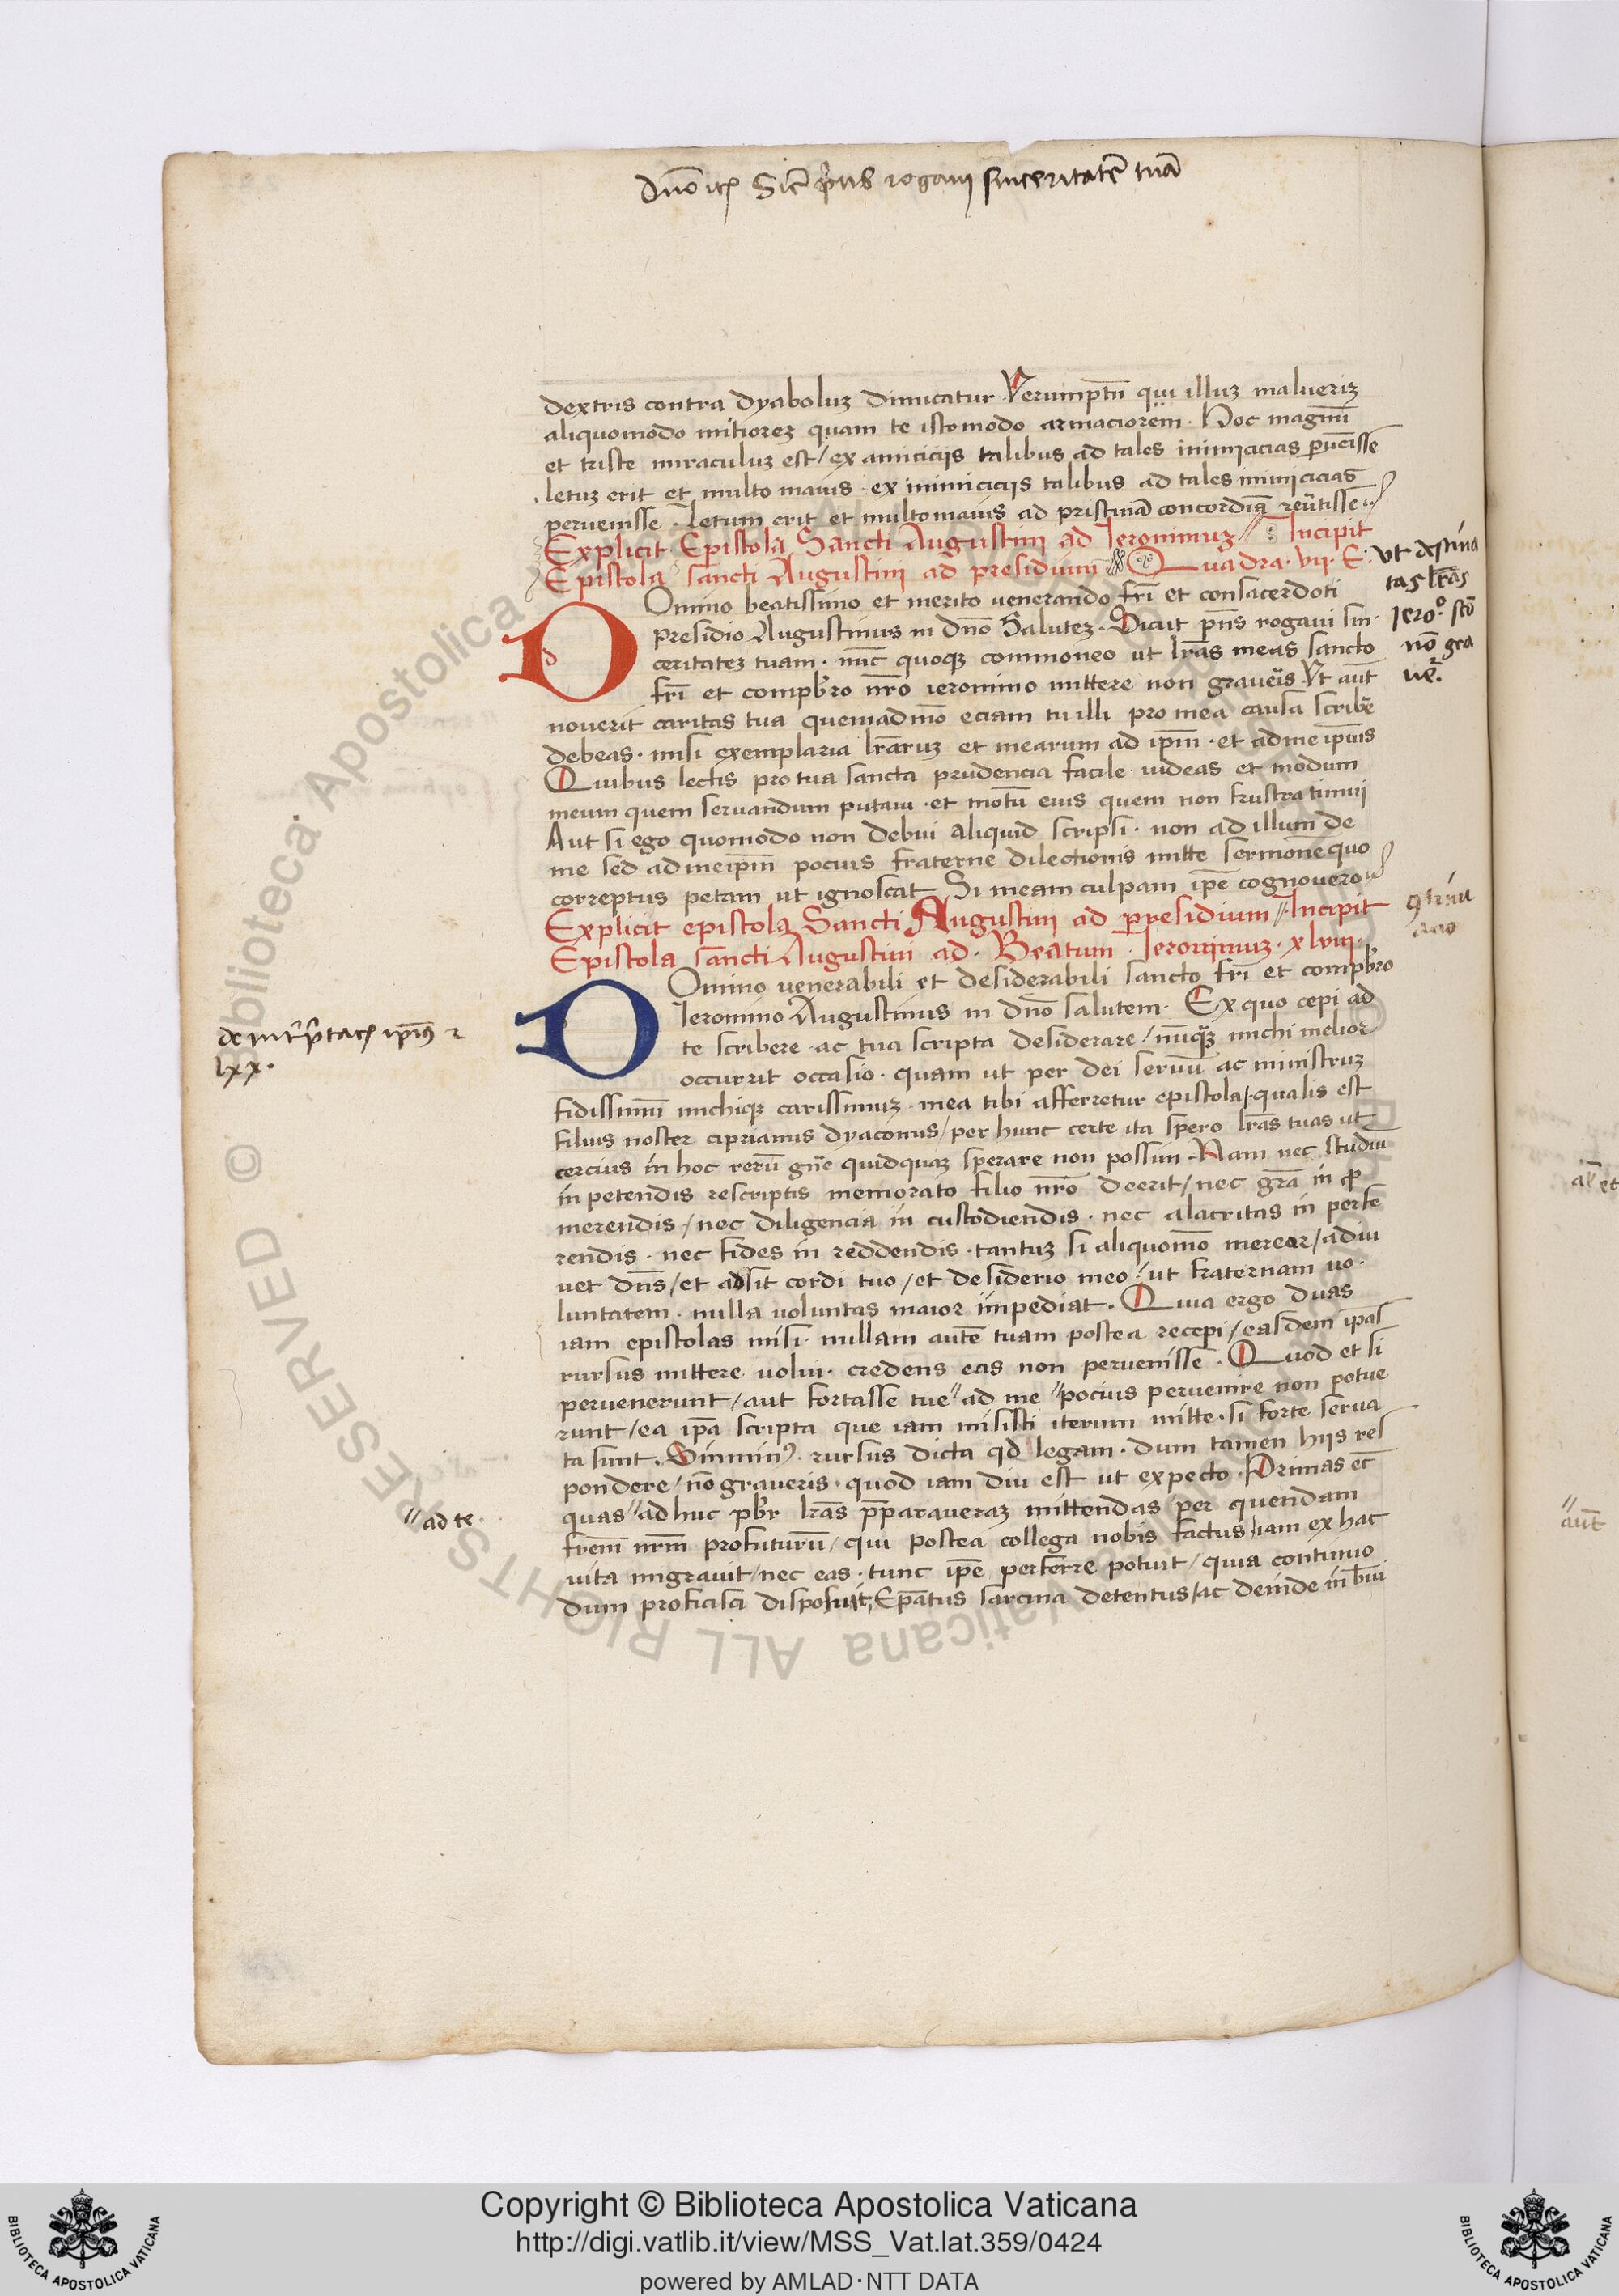 sinceritatē tuā
dextris contra dyaboluz dimicatur Verumptñ qui illuz malueriz
aliquomodo mitiorez quam te istomodo armaciorem. Hoc magnū
et triste miraculuz est/ ex amiciciis talibus ad tales inimicicias puēisse
letuz erit et multo maius. ex inimiciciis talibus ad tales inimicicias
pervenisse. Letum erit et multomaius ad pristinā concordiā reūtisse
Explicit Epistola Sancti Augustini ad Ieronimuz Incipit
Epistola sancti Augustini ad presidium Quadra. vii. E.
Omino beatissimo et merito venerando frī et consacerdoti
presidio Augustinus in dño Salutez. Sicut pñs rogaui sin
ceritatez tuam. nūc quoqz commoneo ut lrās meas sancto
frī et compbro nr̄o ieronimo mittere non graueis Vt aūt
noverit caritas tua quemadmō eciam tu illi pro mea causa scribe
debeas. misi exemplaria lrāruz et mearum ad ipm̄. et ad me ipsius
Quibus lectis pro tua sancta prudencia facile uideas et modum
meum quem servandum putaui. et motū eius quem non frustra timui
Aut si ego quomodo non debui aliquid scripsi. non ad illum de
me sed ad meipm̄ pocius fraterne dilectionis mitte sermonē quo
correptus petam ut ignoscat Si meam culpam ipē cognouero
Explicit epistola Sancti Augustini ad presidium Incipit
Epistola sancti Augustini ad. Beatum. Ieronimuz. xlviii.
Omino venerabili et desiderabili sancto frī et compbro
Ieronimo Augustinus in dño salutem. Ex quo cepi ad
te scribere. ac tua scripta desiderare/ nūqz michi melior
occurrit occasio. quam ut per dei seruū ac ministruz
fidissimū michiqz carissimuz. mea tibi afferretur epistola. qualis est
filius noster ciprianus dyaconus/ per hunc certe ita spero lrās tuas ut
cercius in hoc rerū gñe quidquaz sperare non possim. Nam nec studiū
in petendis rescriptis memorato filio nr̄o deerit/ nec grā in pro
merendis/ nec diligencia in custodiendis. nec alacritas in perfe
rendis. nec fides in reddendis. tantuz si aliquomō merear/ adiu
uet dñs/ et adsit cordi tuo/ et desiderio meo ut fraternam uo
luntatem. nulla voluntas maior impediat. Quia ergo duas
iam epistolas misi. nullam autē tuam postea recepi/ easdem ipas
rursus mittere volui. credens eas non pervenisse. Quod et si
pervenerunt/ aut fortasse tue ad me pocius pervenire non potue
runt/ ea ipā scripta que iam misisti iterum mitte. si forte serua
ta sunt. Sin minꝰ. rursus dicta qd legam. dum tamen hiis res
pondere/ nō graveris. quod iam diu est ut expecto. Primas
quas ad huc pbr lrās preparaueraz mittendas per quendam
frem̄ nrm̄ profuturū/ qui postea collega nobis factus iam ex hac
vita migravit/ nec eas. tunc ipē perferre potuit/ quia continuo
dum proficisci disposuit, Epātus sarcina detentus/ ac deinde in bui
ut destina
tas lrās
Iero. scō
nō gra
uer.
de
lxx.
ad te.
aūt
Copyright © Biblioteca Apostolica Vaticana
http://digi.vatlib.it/view/MSS_Vat.lat.359/0424
powered by AMLAD·NTT DATA
BIBLIOTECA APOSTOLICA VATICANA
BIBLIOTECA APOSTOLICA VATICANA
© Biblioteca Apostolica Vaticana ALL RIGHTS RESERVED